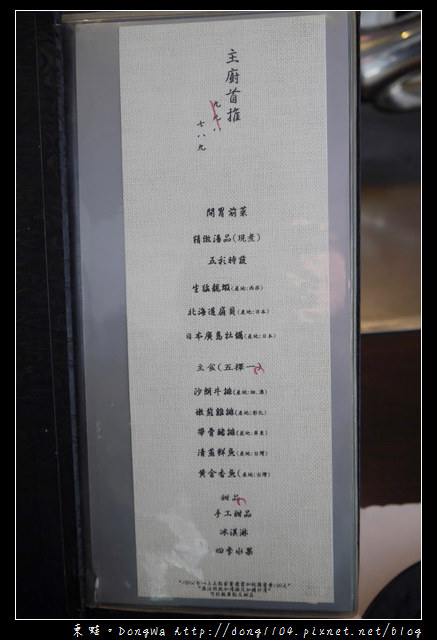 主廚首推
九九八
七八九
開胃前菜
精緻湯品(現煮)
五彩時蔬
生猛龍蝦
北海道扇貝(產地:日本)
日本廣島牡蠣(產地:日本)
主食(五擇一)
沙朗牛排
嫩煎雞排(產地:彰化)
帶骨豬排(產地:屏東)
清蒸鮮魚(產地:台灣)
黃金香魚(產地:台灣)
甜品
手工甜品
冰淇淋
四季水果
東蛙。DongWa http://dong1104.pixnet.net/blog